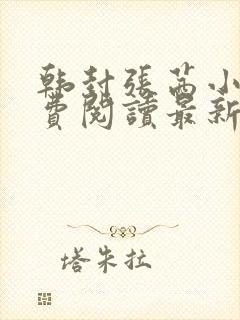 韩封張茜小
費閱讀最新
塔朱拉